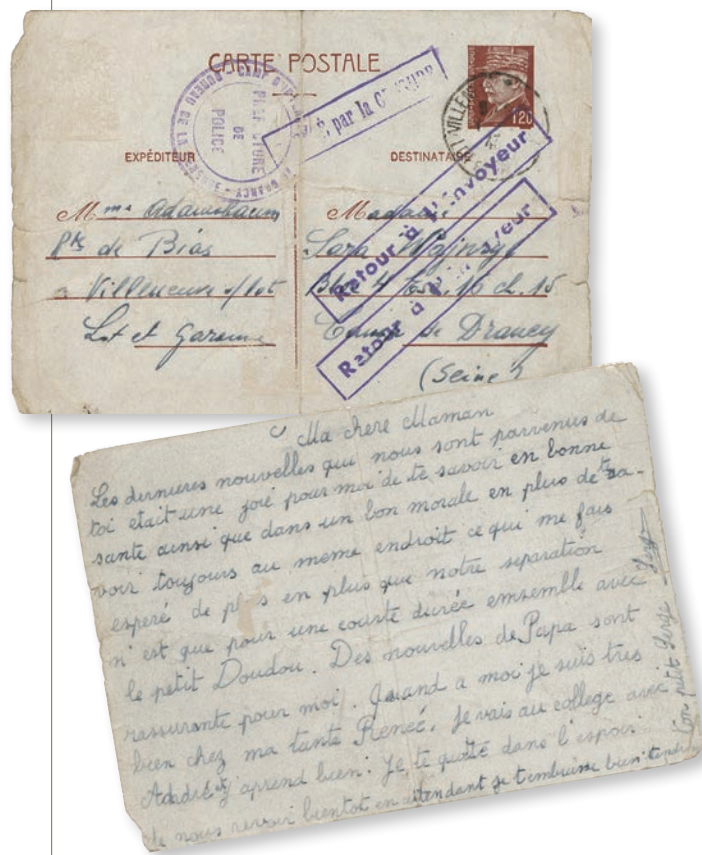 CARTE POSTALE
PRÉFECTURE
DE
POLICE
BUREAU DE LA
par la CENSURE
1,20
EXPÉDITEUR
DESTINATAIRE
Retour à l'Envoyeur
Retour à l'Envoyeur
Mme Adamsbaum
Pte de Bias
a Villeneuve s/lot
Lot et Garonne
Madame
Sara
Bloc 4 Esc. 16 ch. 15
Camp de Drancy
(Seine)
Ma chere Maman
Les dernieres nouvelles qui nous sont parvenues de
toi etait une joie pour moi de te savoir en bonne
santé ainsi que dans un bon morale en plus de te sa-
voir toujours au meme endroit ce qui me fais
esperé de plus en plus que notre separation
n'est que pour une courte durée emsemble avec
le petit Doudou. Des nouvelles de Papa sont
rassurante pour moi. Quand a moi je suis tres
bien chez ma tante Reneé. Je vais au college avec
André et j'aprend bien. Je te quitte dans l'espoir
de nous revoir bientot en attendant je t'embrasse bien tendre
Ton petit Serge Serge